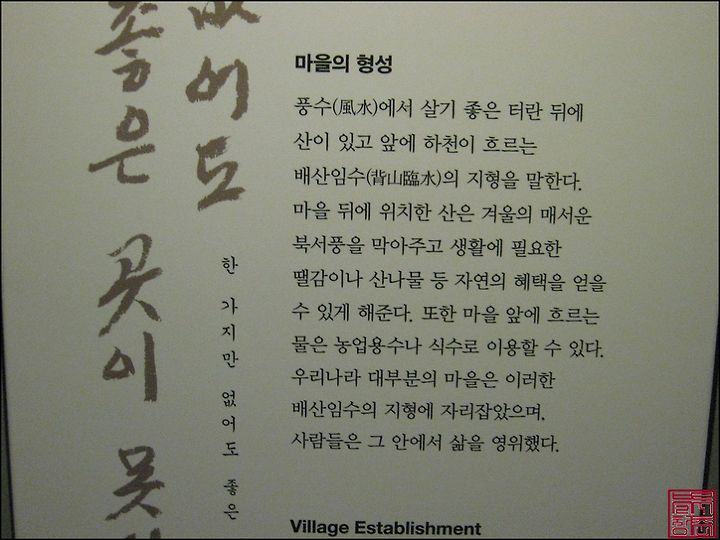 없어도
좋은 곳이 못
한 가지만 없어도 좋은
마을의 형성
풍수(風水)에서 살기 좋은 터란 뒤에
산이 있고 앞에 하천이 흐르는
배산임수(背山臨水)의 지형을 말한다.
마을 뒤에 위치한 산은 겨울의 매서운
북서풍을 막아주고 생활에 필요한
땔감이나 산나물 등 자연의 혜택을 얻을
수 있게 해준다. 또한 마을 앞에 흐르는
물은 농업용수나 식수로 이용할 수 있다.
우리나라 대부분의 마을은 이러한
배산임수의 지형에 자리잡았으며,
사람들은 그 안에서 삶을 영위했다.
Village Establishment